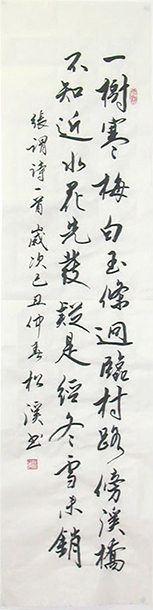 一樹寒梅白玉條迥臨村路傍溪橋
不知近水花先發疑是經冬雪未銷
張謂诗一首歲次己丑仲春松溪书